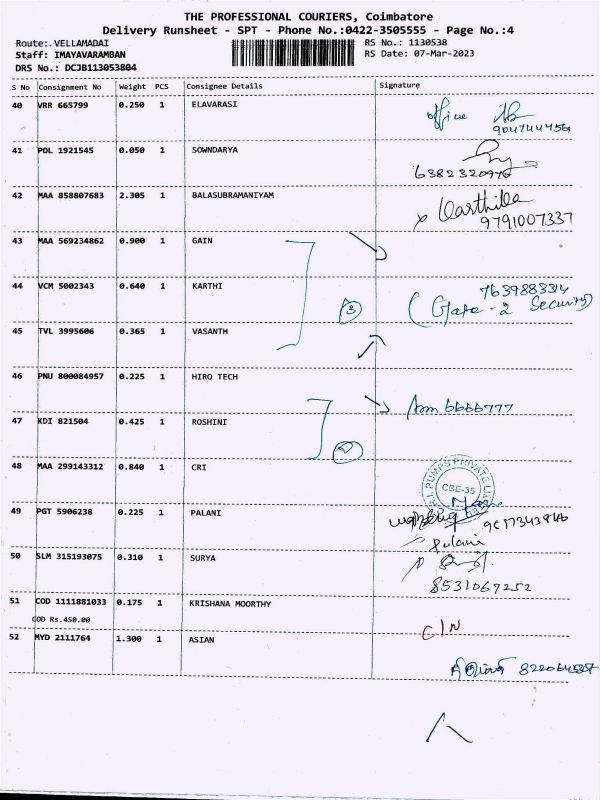 THE PROFESSIONAL COURIERS, Coimbatore
Delivery Runsheet - SPT - Phone No.:0422-3505555 - Page No.:4
Route: VELLAMADAI
RS No.: 1130538
Staff: IMAYAVARAMBAN
RS Date: 07-Mar-2023
DRS No.: DCJB113053804
S No Consignment No Weight PCS Consignee Details Signature
40 VRR 665799 0.250 1 ELAVARASI office
41 POL 1921545 0.050 1 SOWNDARYA
42 MAA 858807683 2.305 1 BALASUBRAMANIYAM Karthika
9791007337
43 MAA 569234862 0.900 1 GAIN
44 VCM 5002343 0.640 1 KARTHI
3 (Gate-2 Security)
45 TVL 3995606 0.365 1 VASANTH
46 PNU 800084957 0.225 1 HIRO TECH
47 KDI 821504 0.425 1 ROSHINI
48 MAA 299143312 0.840 1 CRI
PUMPS PRIVATE
CBE-35
49 PGT 5906238 0.225 1 PALANI
Palani
50 SLM 315193075 0.310 1 SURYA
8531067252
51 COD 1111881033 0.175 1 KRISHANA MOORTHY
COD Rs.450.00
52 MYD 2111764 1.300 1 ASIAN